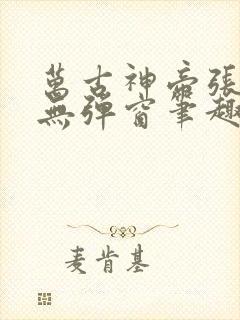 萬古神帝張
無彈窗筆趣
麦肯基